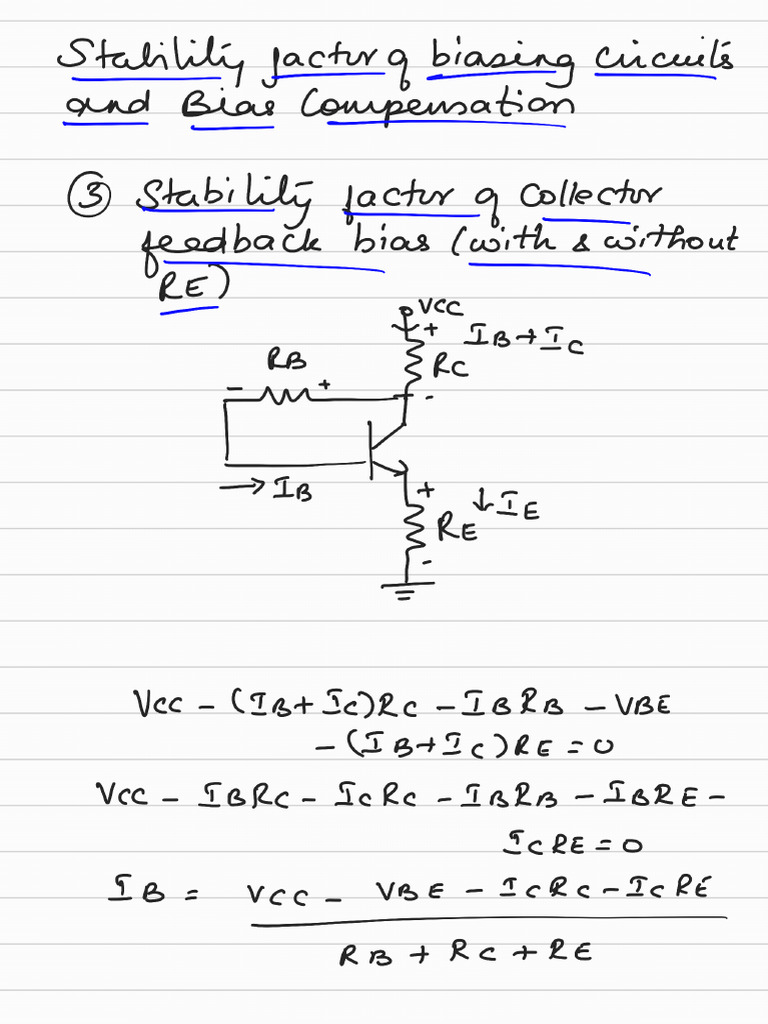 Stability factor of biasing circuits
and Bias Compensation
③ Stability factor of Collector
feedback bias (with & without
RE)
VCC
+ IB+IC
RB
RC
- +
-
→ IB
+ ↓ IE
RE
-
VCC - (IB+IC)RC - IBRB - VBE
- (IB+IC)RE = 0
VCC - IBRC - ICRC - IBRB - IBRE -
ICRE = 0
IB = VCC - VBE - ICRC - ICRE
RB + RC + RE